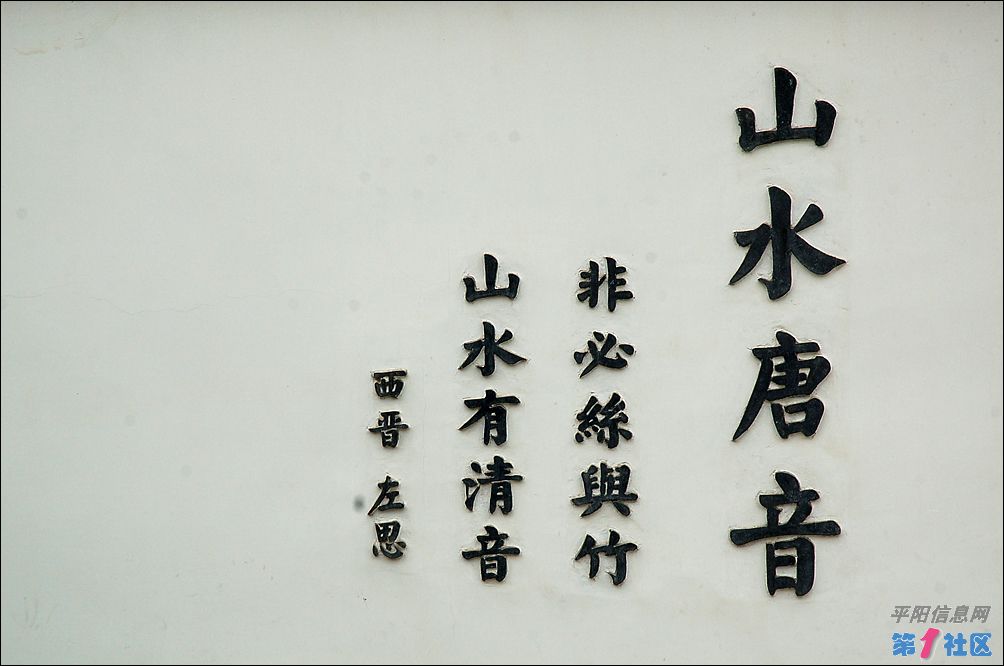 山水唐音
非必絲與竹
山水有清音
西晋 左思
平阳信息网
第1社区